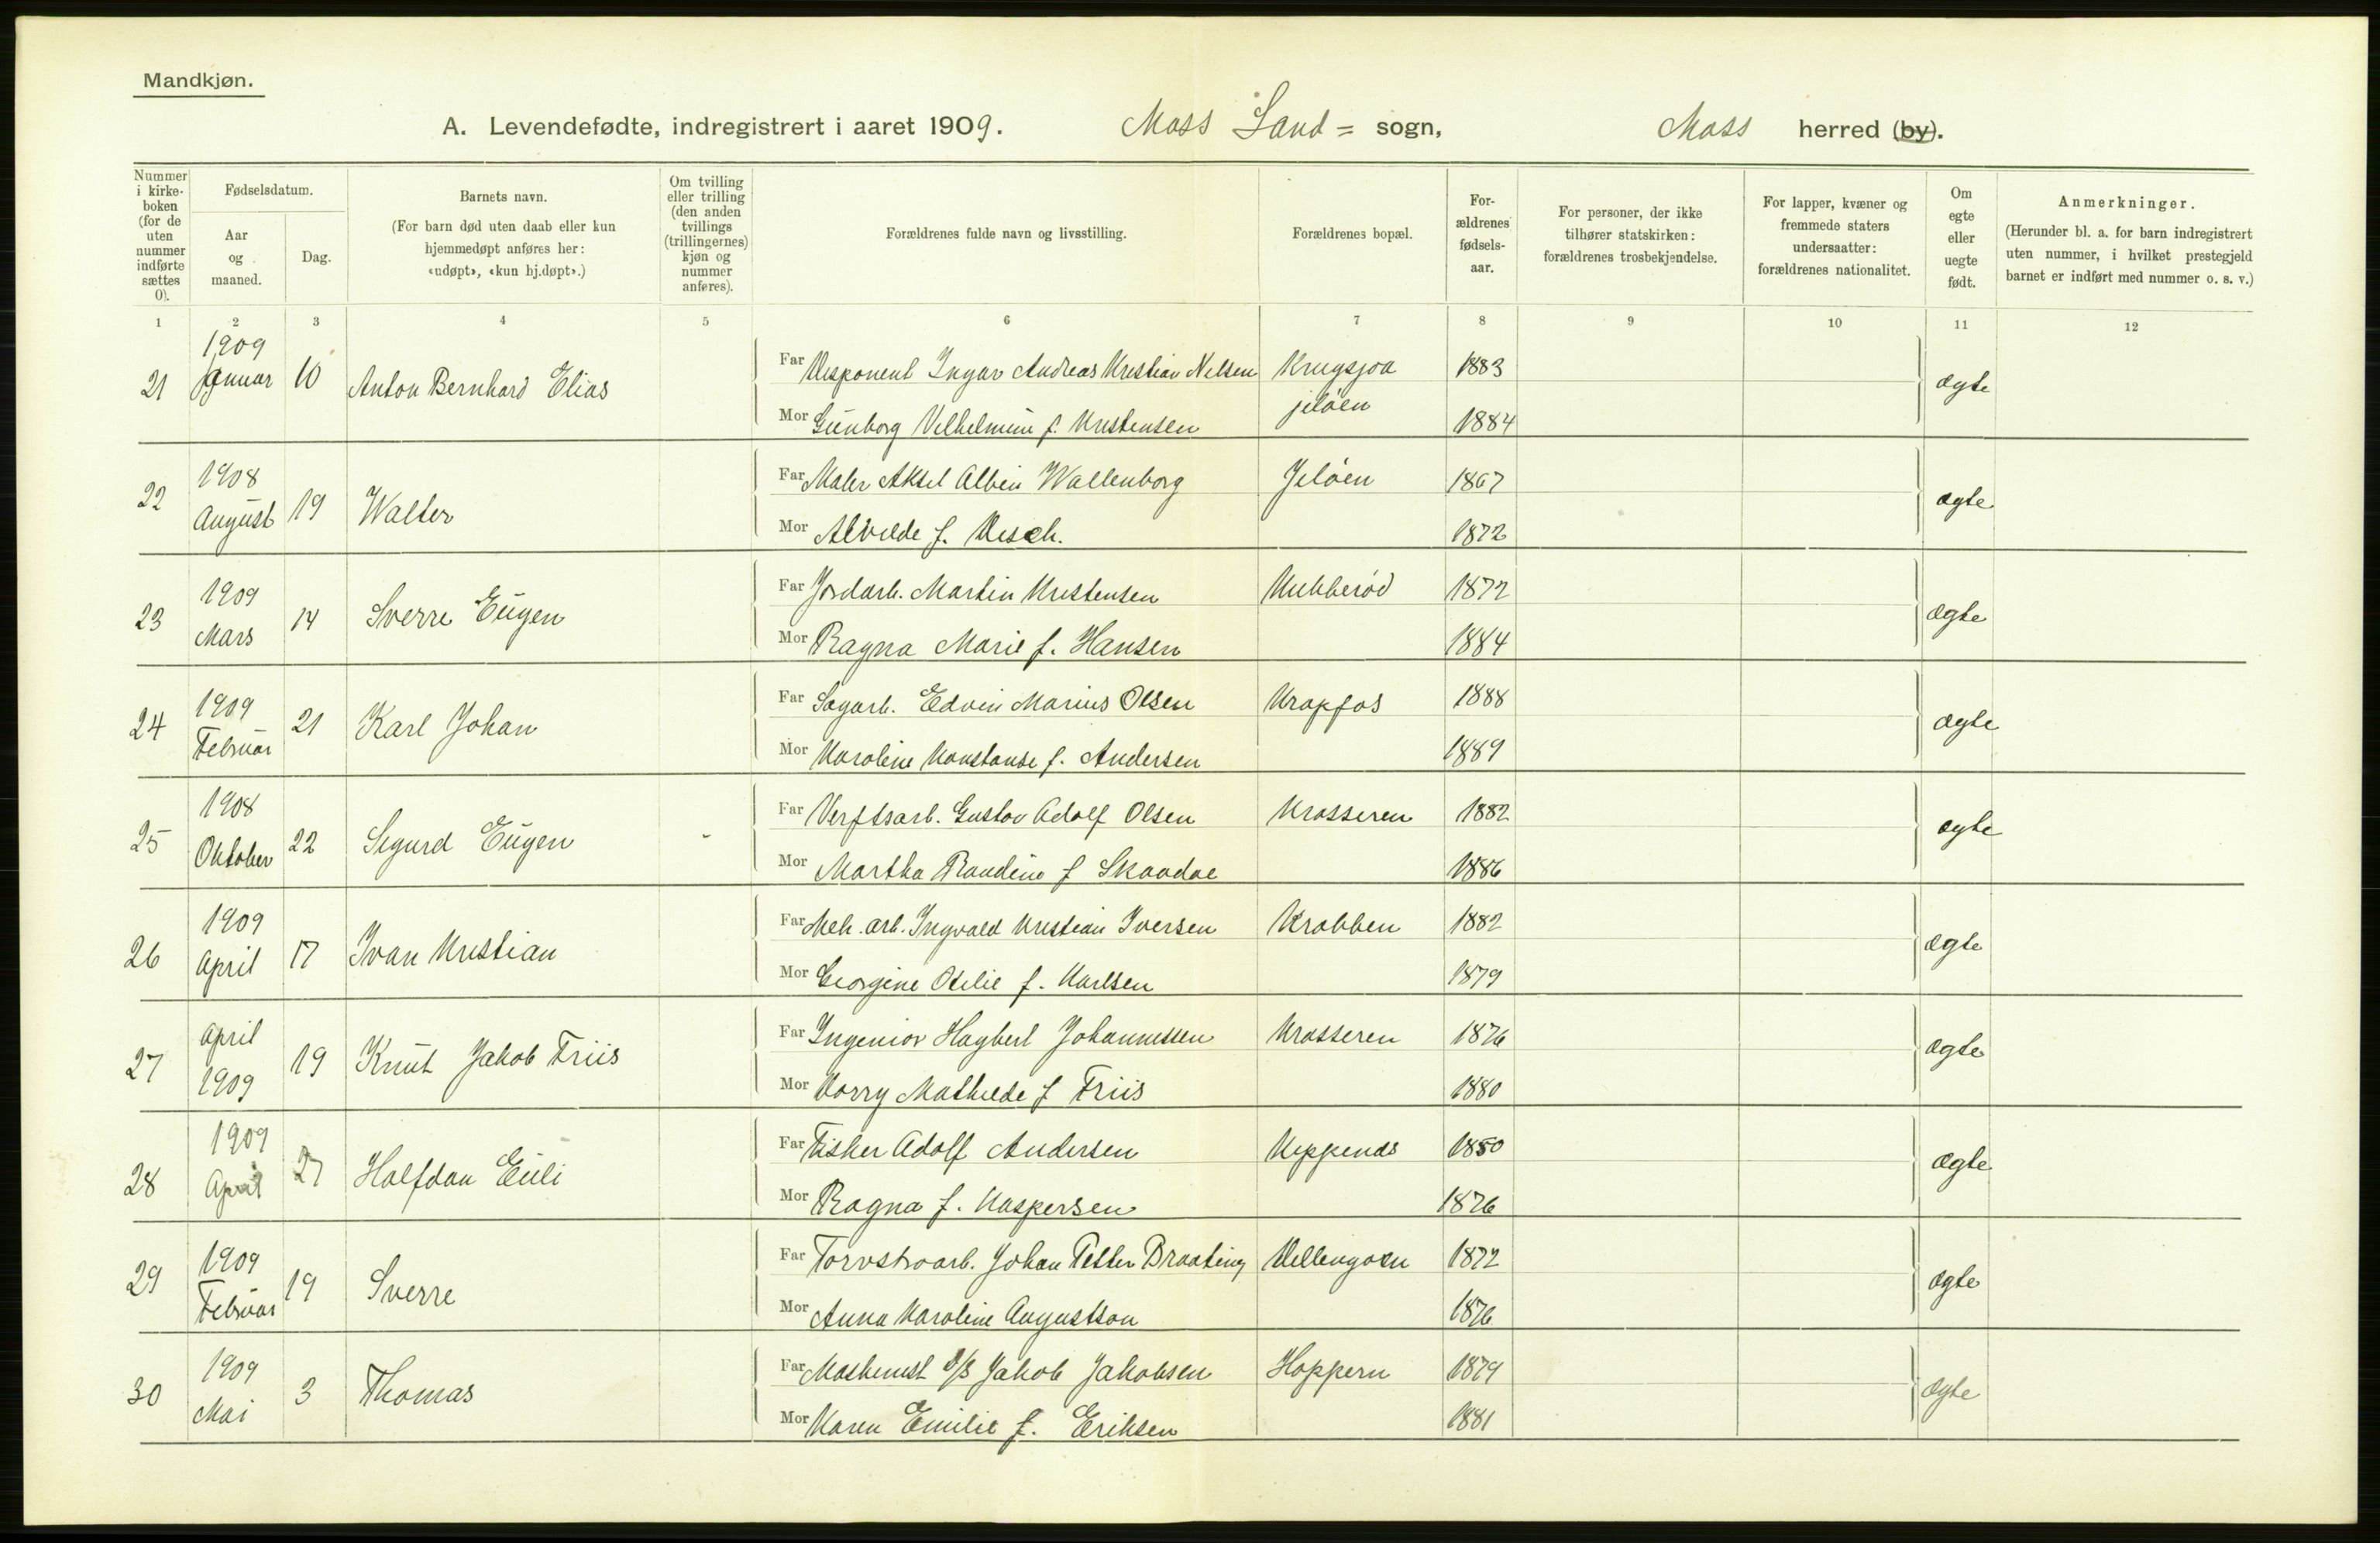 Mandkjøn.
A. Levendefødte, indregistrert i aaret 1909. Moss Land= sogn, Moss herred (by).
Nummer i kirke-boken (for de uten nummer indførte sættes 0).
Fødselsdatum.
Aar og maaned.
Dag.
Barnets navn.
(For barn død uten daab eller kun hjemmedøpt anføres her: «udøpt», «kun hj.døpt».)
Om tvilling eller trilling (den anden tvillings (trillingernes) kjøn og nummer anføres).
Forældrenes fulde navn og livsstilling.
Forældrenes bopæl.
For-ældrenes fødsels-aar.
For personer, der ikke tilhører statskirken: forældrenes trosbekjendelse.
For lapper, kvæner og fremmede staters undersaatter: forældrenes nationalitet.
Om egte eller uegte født.
Anmerkninger.
(Herunder bl. a. for barn indregistrert uten nummer, i hvilket prestegjeld barnet er indført med nummer o. s. v.)
1 2 3 4 5 6 7 8 9 10 11 12
21 1909 Januar 10 Anton Bernhard Elias
Far Ingar Andreas Kristian Nilsen 1883
Mor Gunborg Vilhelmine f. Kristensen Jeløen 1884
ægte
22 1908 August 19 Walter
Far Maler Aksel Albin Wallenborg Jeløen 1867
Mor Alvilde f. 1872
ægte
23 1909 Mars 14 Sverre Eugen
Far Jordarb. Martin Kristensen Kubberød 1872
Mor Ragna Marie f. Hansen 1884
ægte
24 1909 Februar 21 Karl Johan
Far Sagarb. Edvin Marius Olsen Krapfos 1888
Mor Karoline Konstanse f. Andersen 1889
ægte
25 1908 Oktober 22 Sigurd Eugen -
Far Verftsarb. Gustav Adolf Olsen Krosseren 1882
Mor Martha Randine f 1886
ægte
26 1909 April 17 Ivan Kristian
Far Mek. arb. Ingvald Kristian Iversen Krabben 1882
Mor Georgine Otilie f. Karlsen 1879
ægte
27 April 1909 19 Knut Jakob Friis
Far Ingeniør Hagbert Johannessen Krosseren 1876
Mor Mathilde f Friis 1880
ægte
28 1909 April 27 Halfdan Euli
Far Fisker Adolf Andersen 1880
Mor Ragna f. Kaspersen 1876
ægte
29 1909 Februar 19 Sverre
Far Johan Petter Braating 1872
Mor Anna Karoline Augustson 1876
ægte
30 1909 Mai 3 Thomas
Far Maskinist Jakob Jakobsen Hoppern 1879
Mor Karen Emilie f. Eriksen 1881
ægte